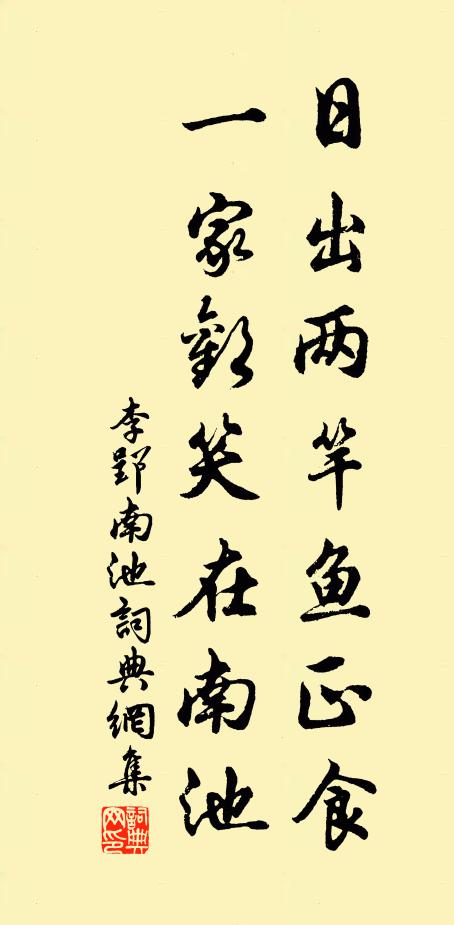 日出两竿鱼正食
一家歡笑在南池
李郢南池詞典網集
詞典網印